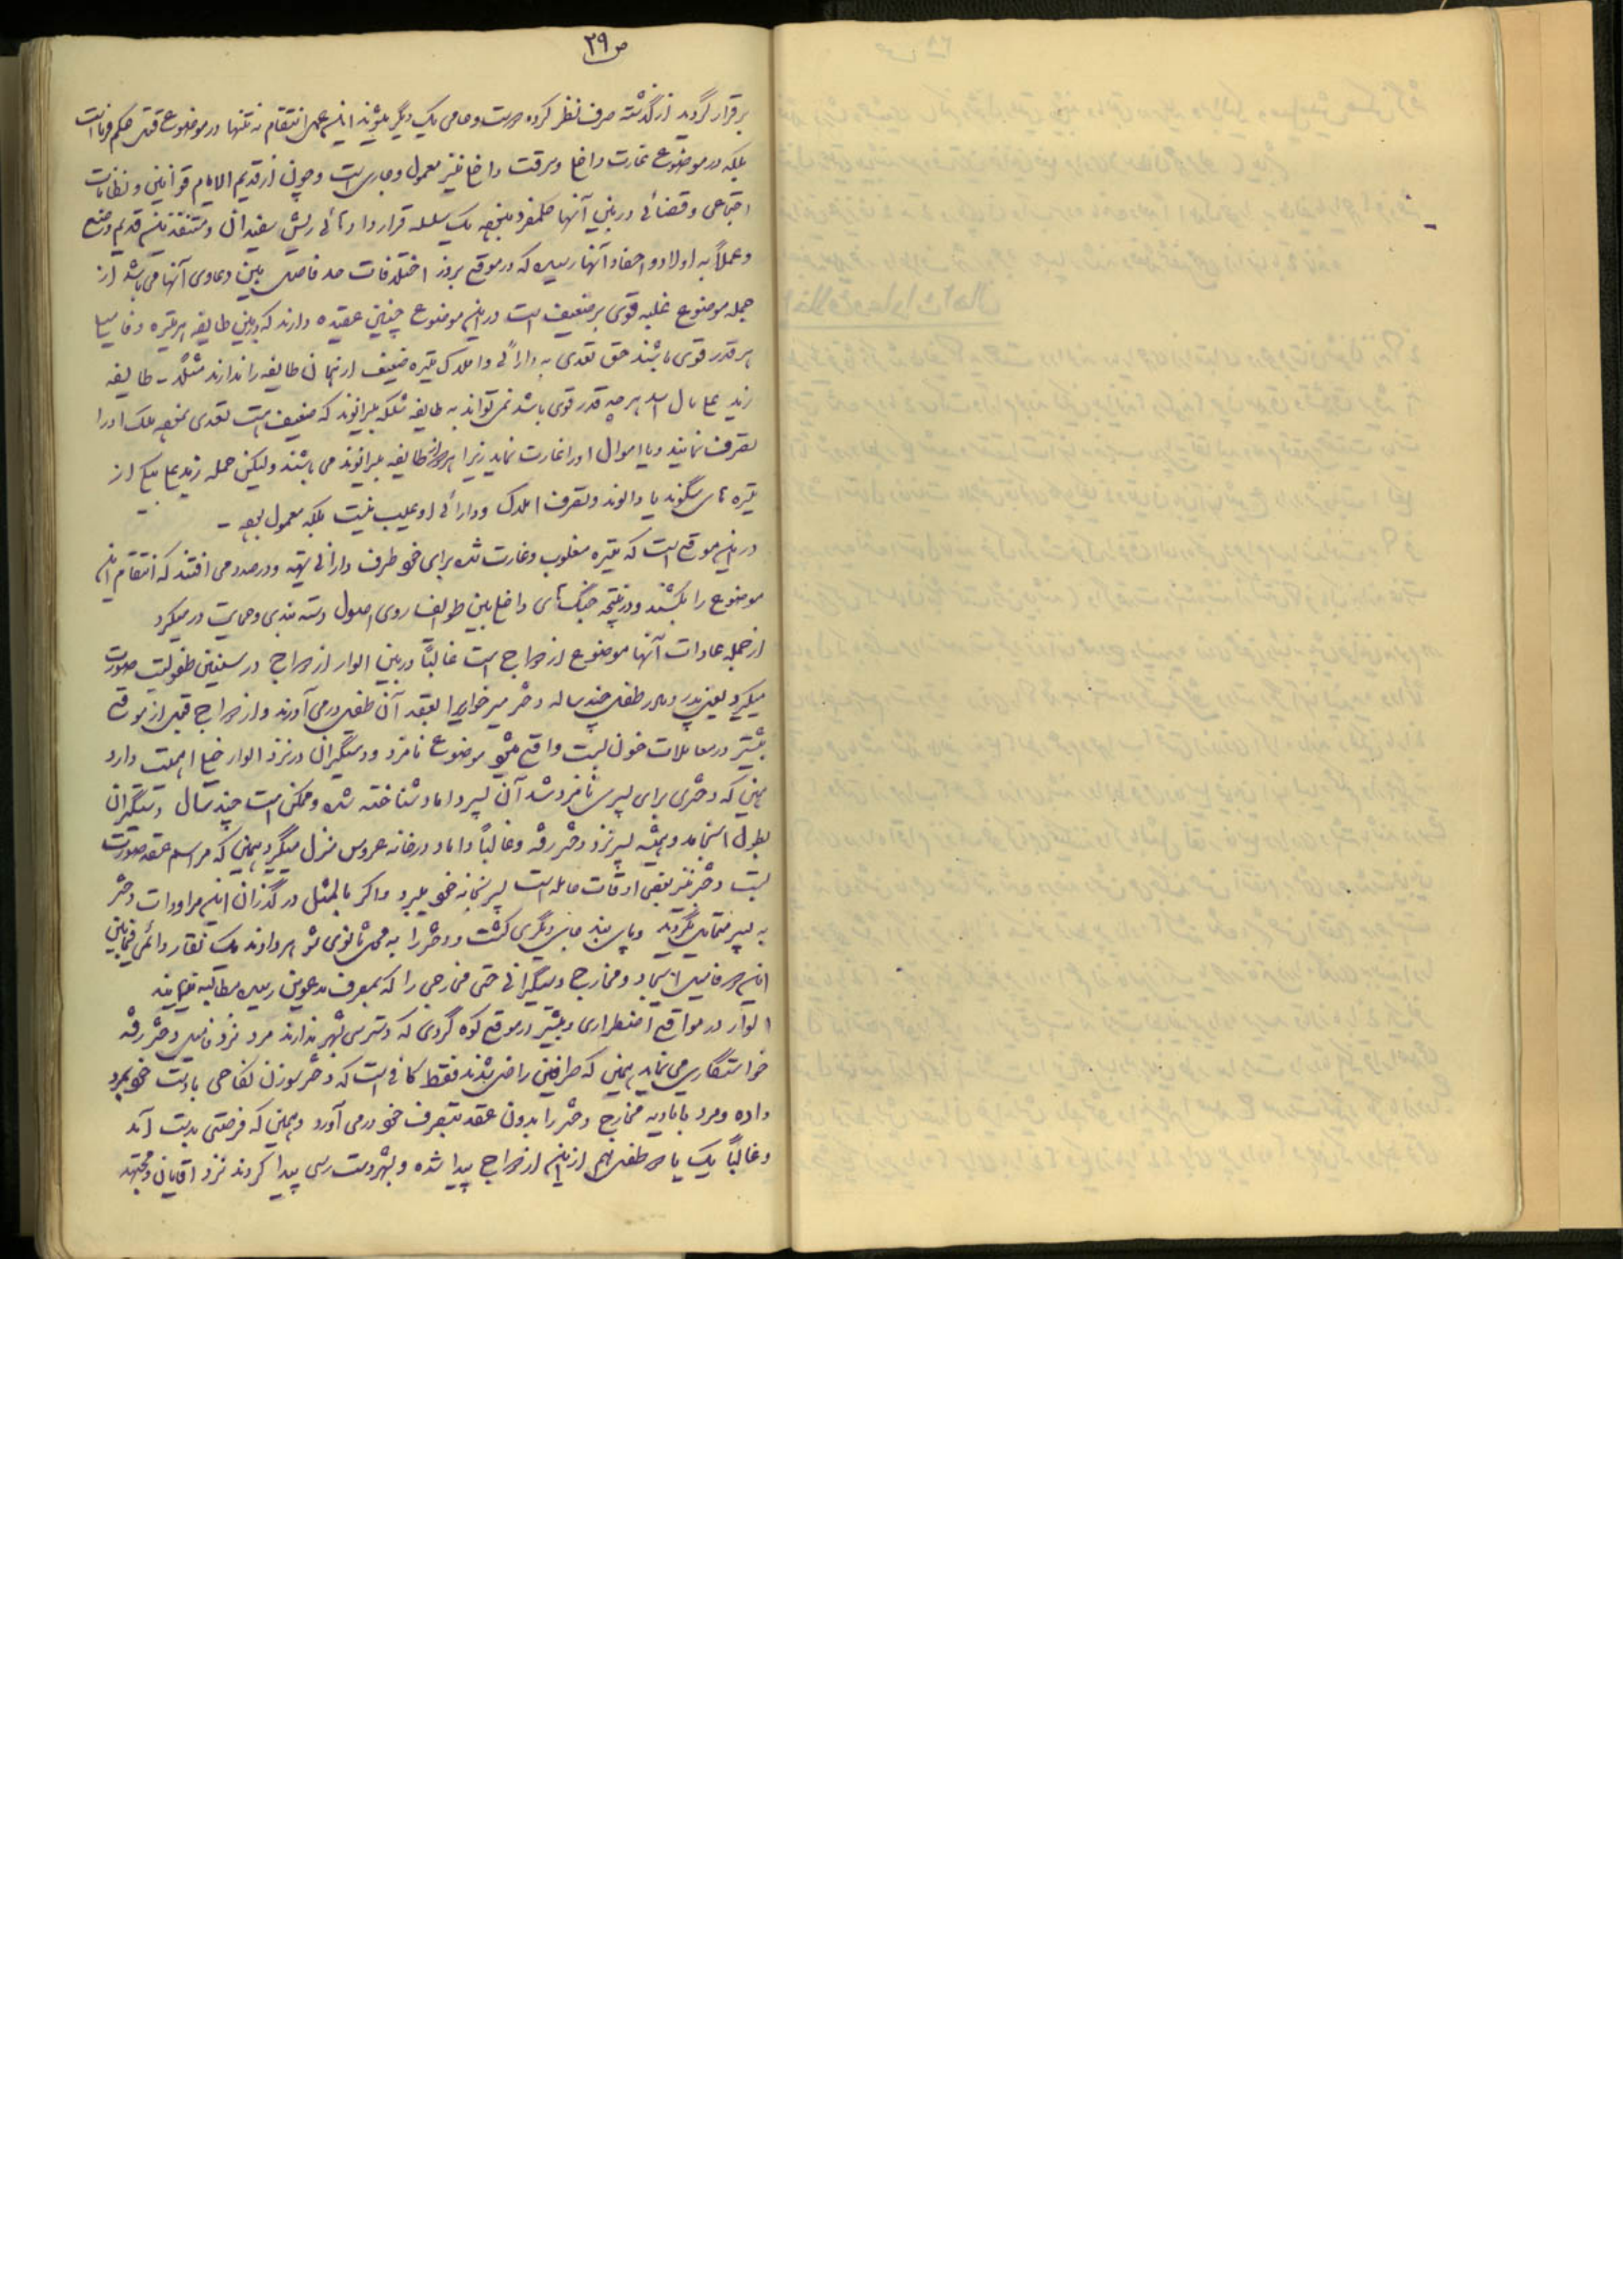 ص ۲۹
برقرار گردید از گذشته صرف نظر کرده دوست و حامی یک دیگر میشوند این عمل انتقام نه تنها در موضوع قتل حکم فرما است
بلکه در موضوع غارت داخل و سرقت داخل نیز معمول و جاری است و چون از قدیم الایام قوانین و نظامات
اجتماعی و قضائی در بین آنها حکمفرما نبوده یک سلسله قراردادهائی ریش سفیدان و متنفذین قدیم وضع
و عملاً به اولاد و احفاد آنها رسیده که در موقع بروز اختلافات حد فاصل بین دعاوی آنها می باشد از
جمله موضوع غلبه قوی بر ضعیف است در این موضوع چنین عقیده دارند که در بین طایفه هر تیره و فامیل
هر قدر قوی باشند حق تعدی به دارائی و املاک تیره ضعیف از همان طایفه را ندارند مثلاً - طایفه
زید هر چه قدر قوی باشد نمی تواند به طایفه بیرانوند که ضعیف است تعدی نموده ملک او را
تصرف نمایند و یا اموال او را غارت نماید زیرا هر دو از طایفه بیرانوند می باشند ولیکن حمله زید علی به یکی از
تیره های سگوند یا دالوند و تصرف املاک و دارائی او عیب نیست بلکه معمول بوده -
در این موقع است که تیره مغلوب و غارت شده برای خود طرف دارانی تهیه و در صدد می افتند که انتقام این
موضوع را بکشند و در نتیجه جنگ های داخلی بین طوایف روی اصول دسته بندی و حمایت در میگیرد
از جمله عادات آنها موضوع ازدواج است غالباً در بین الوار ازدواج در سنین طفولیت صورت
میگیرد یعنی پدر و مادر طفل چند ساله دختر میرخواهی را بعقد آن طفل در می آورند و ازدواج قبل از موقع
بیشتر در معاملات خون بست واقع میشود موضوع نامزد و دستگیران در نزد الوار خیلی اهمیت دارد
همین که دختری برای پسری نامزد شد آن پسر داماد شناخته شده و ممکن است چند سال دستگیران
بطول انجامد و همیشه پسر نزد دختر رفته و غالباً داماد در خانه عروس منزل میگیرد همین که مراسم عقد صورت
بست دختر نیز بعضی اوقات حامله است پسر بخانه خود میبرد و اگر بالمثل در گذران این مراودات دختر
به پسر متمایل نگردید و پای بند جای دیگری گشت و دختر را به محل ثانوی شوهر دادند یک نقار دائمی فیمابین
این دو فامیل ایجاد و مخارج دستگیرانی حتی مخارجی را که بمصرف مدعوین رسیده مطالبه مینمایند
الوار در مواقع اضطراری و بیشتر در موقع کوه گردی که دسترسی بشهر ندارند مرد نزد فامیل دختر رفته
خواستگاری می نماید همین که طرفین راضی شدند فقط کافی است که دختر سوزن لحافی با دست خود بمرد
داده و مرد با تادیه مخارج دختر را بدون عقد بتصرف خود در می آورد و همین که فرصتی بدست آمد
و غالباً یک یا دو طفل هم از این ازدواج پیدا شده و بشهر دست رسی پیدا کردند نزد آقایان و مجتهد